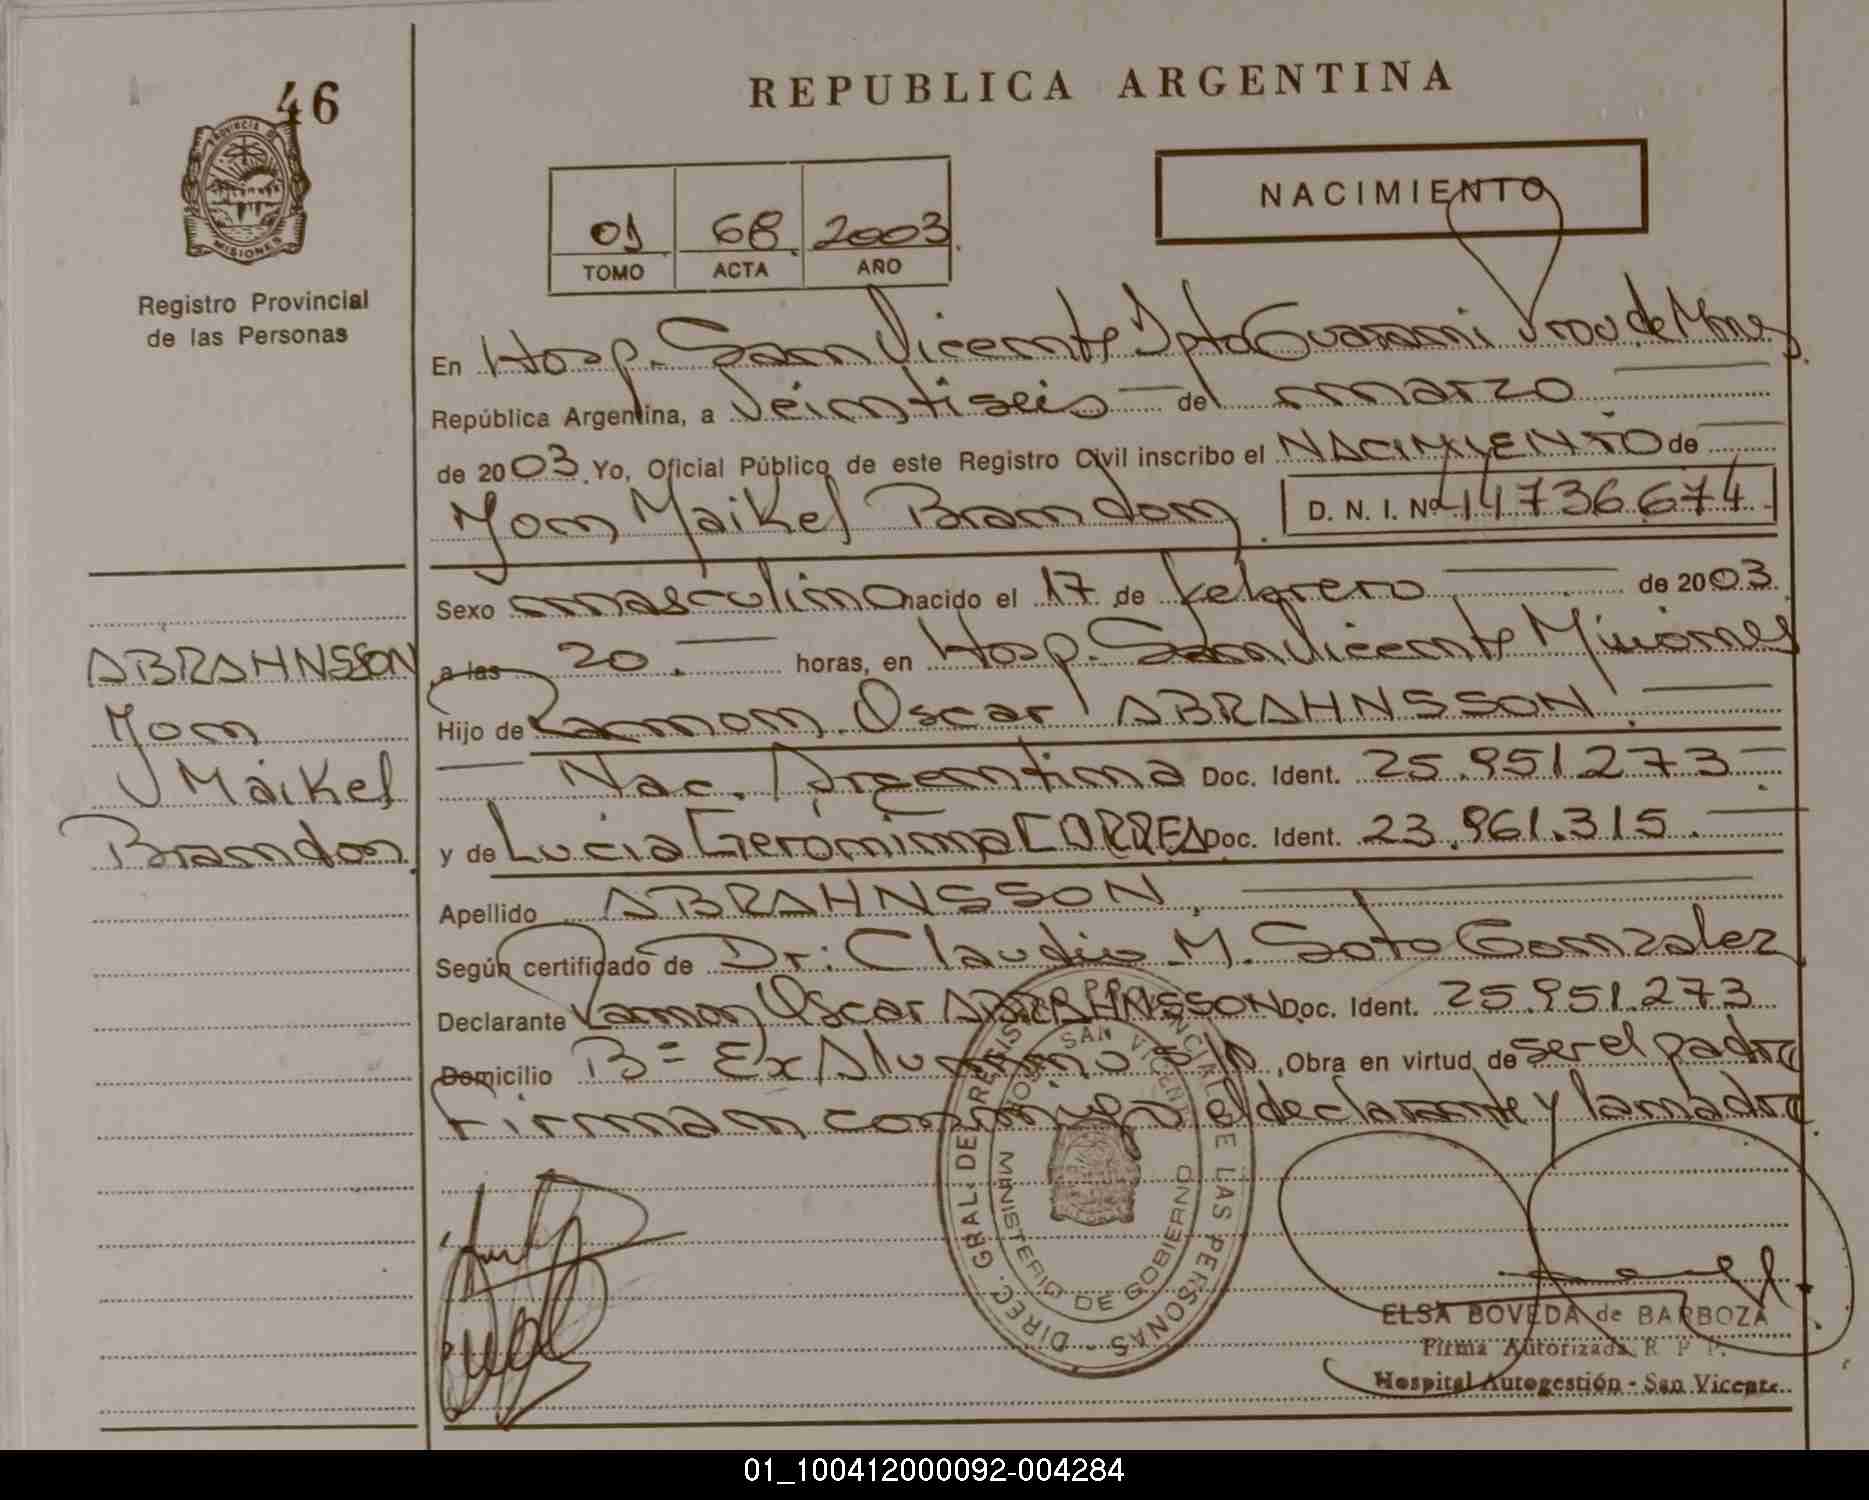 46
PROVINCIA DE
MISIONES
Registro Provincial
de las Personas
ABRAHNSSON
Yon
Maikel
Brandon.
REPUBLICA ARGENTINA
01 68 2003
TOMO ACTA AÑO
NACIMIENTO
En Hosp. San Vicente Dpto Guarani Prov. de Mnes
República Argentina, a Veintiseis de marzo
de 2003. Yo, Oficial Público de este Registro Civil inscribo el NACIMIENTO de
Yon Maikel Brandon. D. N. I. Nº 44736.674.-
Sexo masculino nacido el 17 de febrero de 2003.
a las 20.- horas, en Hosp. San Vicente Misiones
Hijo de Ramon Oscar ABRAHNSSON.
Nac. Argentina Doc. Ident. 25.951.273
y de Lucia Gerónima CORREA Doc. Ident. 23.961.315.
Apellido ABRAHNSSON.
Según certificado de Dr: Claudio M. Soto Gonzalez
Declarante Ramon Oscar ABRAHNSSON Doc. Ident. 25.951.273
Domicilio Bº Ex Alumno S/n, Obra en virtud de ser el padre
Firman conmigo el declarante y la madre.
DIREC. GRAL. DE REGIS PROVINCIAL DE LAS PERSONAS -
HOSP SAN VICENTE
MINISTERIO DE GOBIERNO
ELSA BOVEDA de BARBOZA
Firma Autorizada R P P.
Hospital Autogestión - San Vicente
01_100412000092-004284